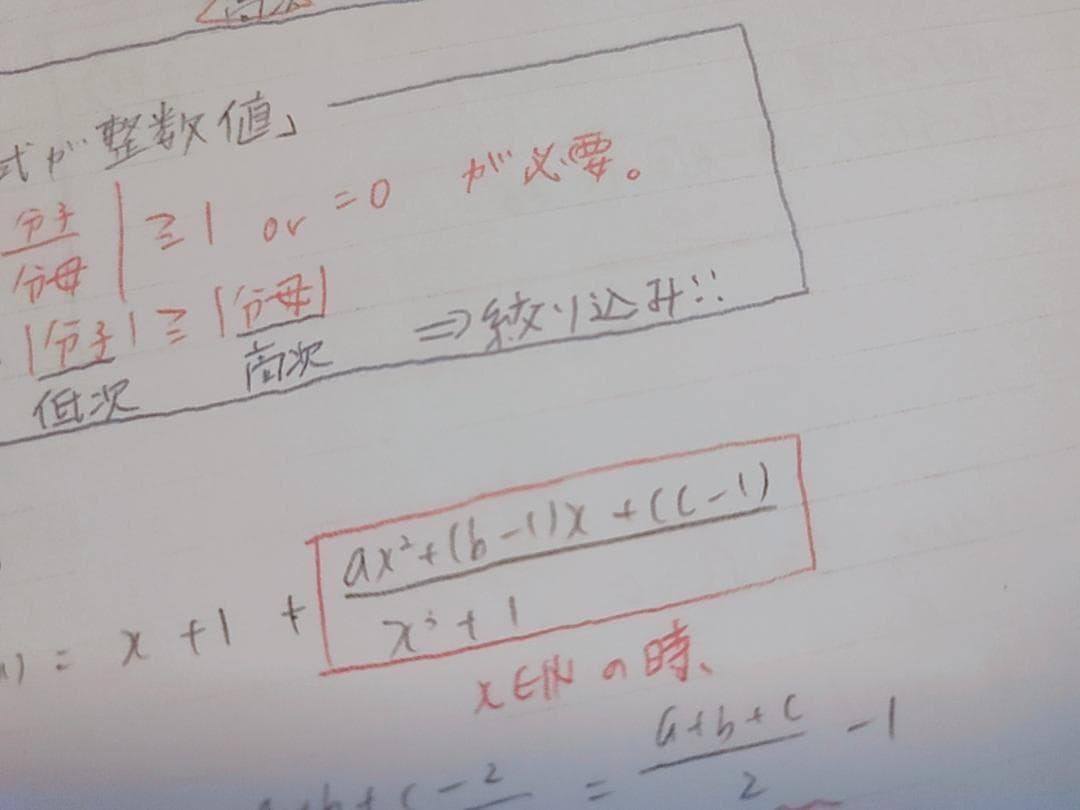 式が「整数値」
|分子/分母| ≧ 1 or = 0 が必要。
|分子| ≧ |分母| ⇒ 絞り込み!!
低次 高次
= x + 1 + (ax²+(b-1)x+(c-1))/(x³+1)
x∈ℕの時、
a+b+c-2 = (a+b+c)/2 - 1